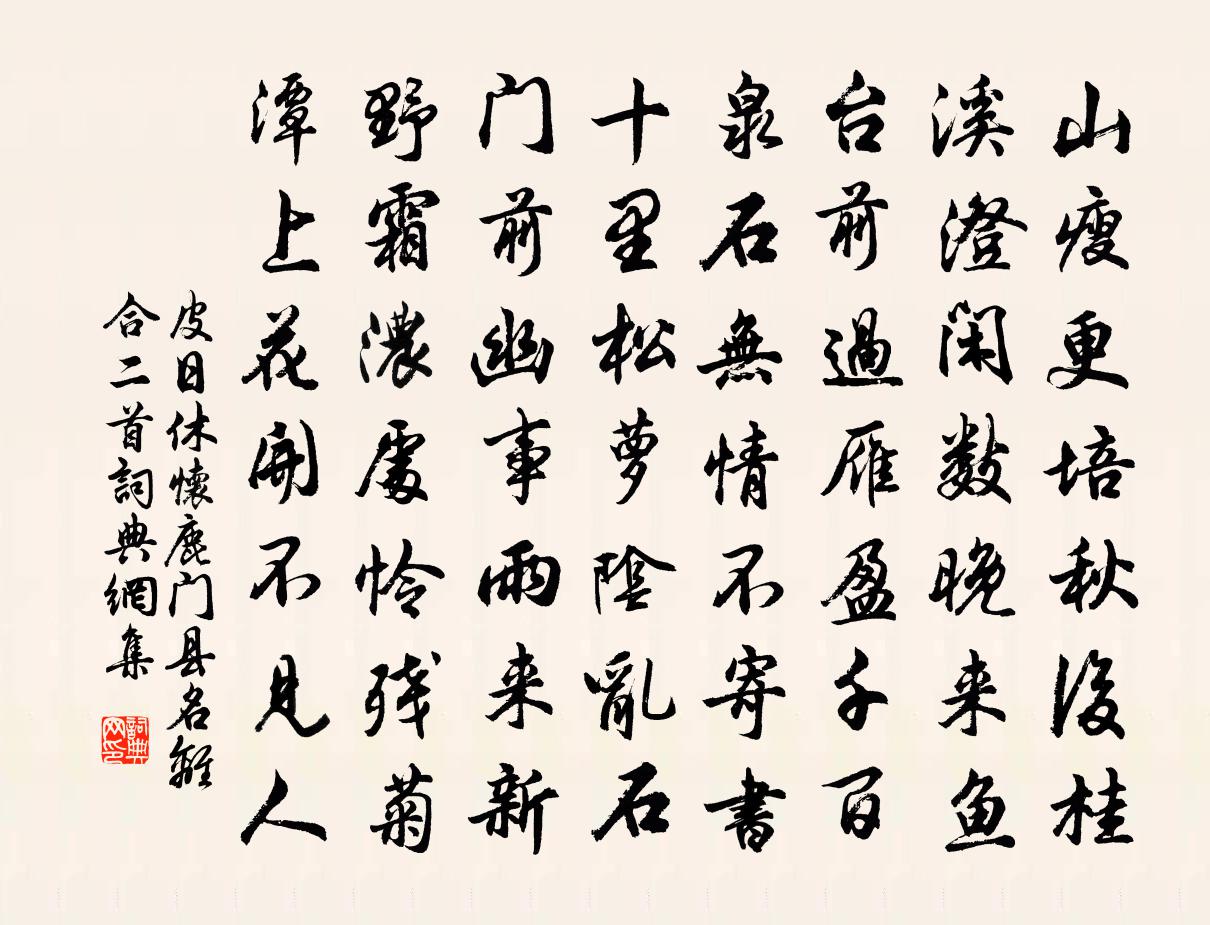 山瘦更培秋後桂
溪澄闲數晚来鱼
台前過雁盈千百
泉石無情不寄書
十里松萝陰亂石
门前幽事雨来新
野霜濃處怜残菊
潭上花開不見人
皮日休懷鹿门县名離
合二首詞典網集
詞典网印